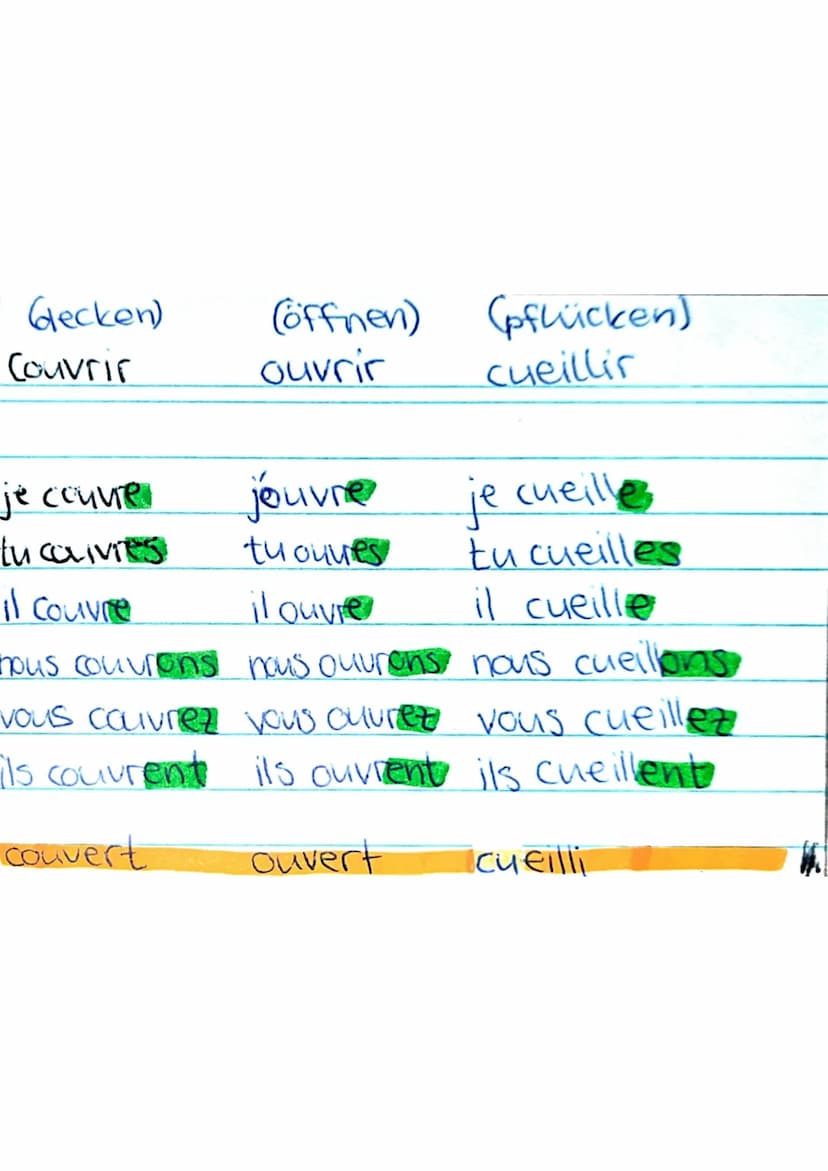 (decken) (öffnen) (pflücken)
couvrir ouvrir cueillir
je couvre j'ouvre je cueille
tu couvres tu ouvres tu cueilles
il couvre il ouvre il cueille
nous couvrons nous ouvrons nous cueillons
vous couvrez vous ouvrez vous cueillez
ils couvrent ils ouvrent ils cueillent
couvert ouvert cueilli